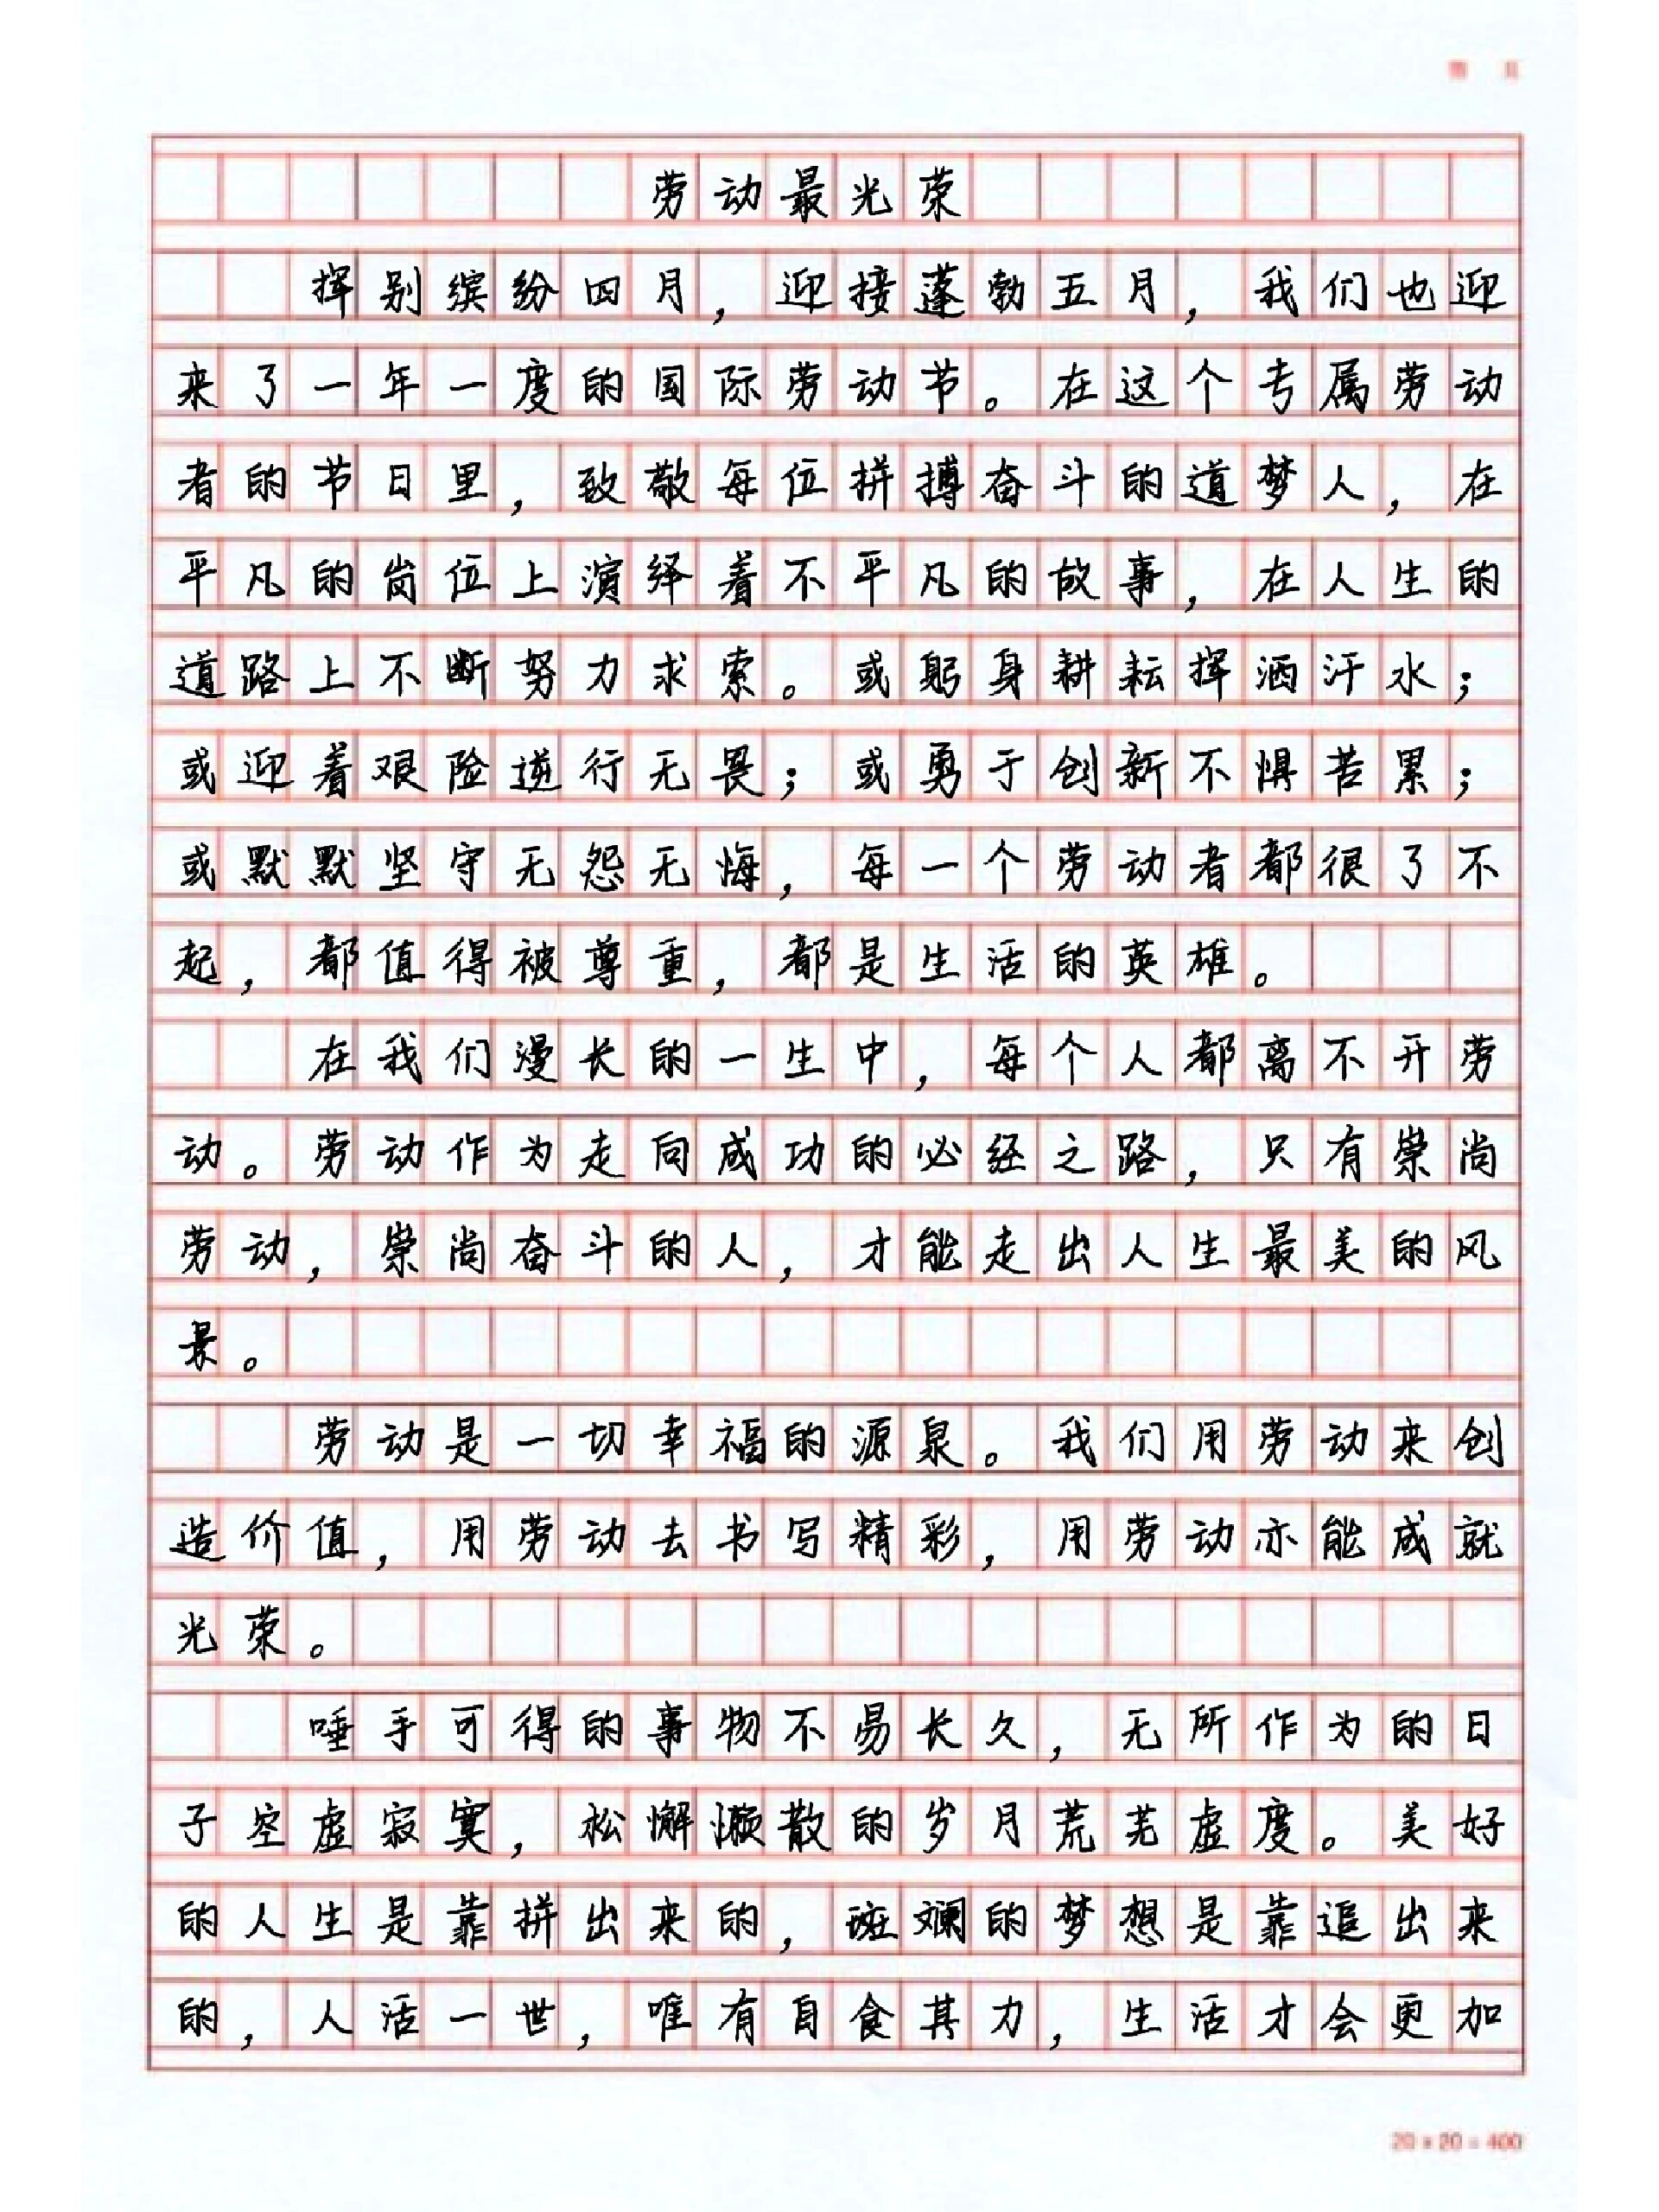 劳动最光荣
挥别缤纷四月，迎接蓬勃五月，我们也迎
来了一年一度的国际劳动节。在这个专属劳动
者的节日里，致敬每位拼搏奋斗的道梦人，在
平凡的岗位上演绎着不平凡的故事，在人生的
道路上不断努力求索。或躬身耕耘挥洒汗水；
或迎着艰险逆行无畏；或勇于创新不惧苦累；
或默默坚守无怨无悔，每一个劳动者都很了不
起，都值得被尊重，都是生活的英雄。
在我们漫长的一生中，每个人都离不开劳
动。劳动作为走向成功的必经之路，只有崇尚
劳动，崇尚奋斗的人，才能走出人生最美的风
景。
劳动是一切幸福的源泉。我们用劳动来创
造价值，用劳动去书写精彩，用劳动亦能成就
光荣。
唾手可得的事物不易长久，无所作为的日
子空虚寂寞，松懈懒散的岁月荒芜虚度。美好
的人生是靠拼出来的，斑斓的梦想是靠追出来
的，人活一世，唯有自食其力，生活才会更加
20×20=400